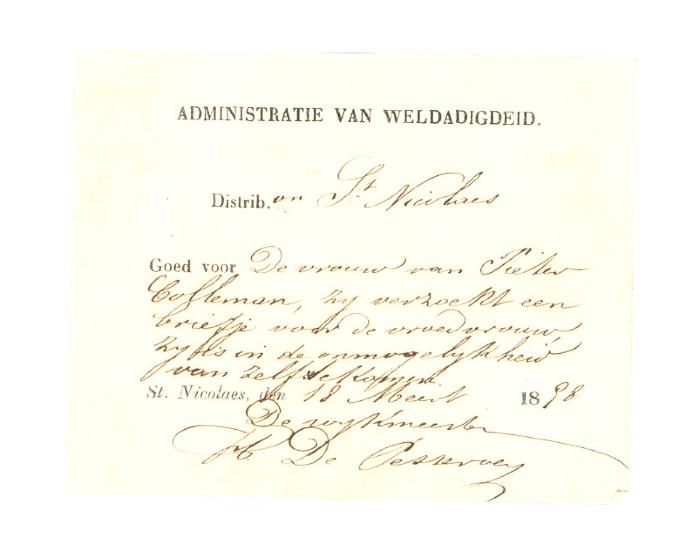 ADMINISTRATIE VAN WELDADIGDEID.
Distrib.on St Nicolaes
Goed voor De vrouw van Pieter
Colleman, zy verzoekt een
briefje voor de vroedvrouw
zy is in de onmogelykheid
van zelf te komen
St. Nicolaes, den 18 Meert 1898
De wykmeester
De